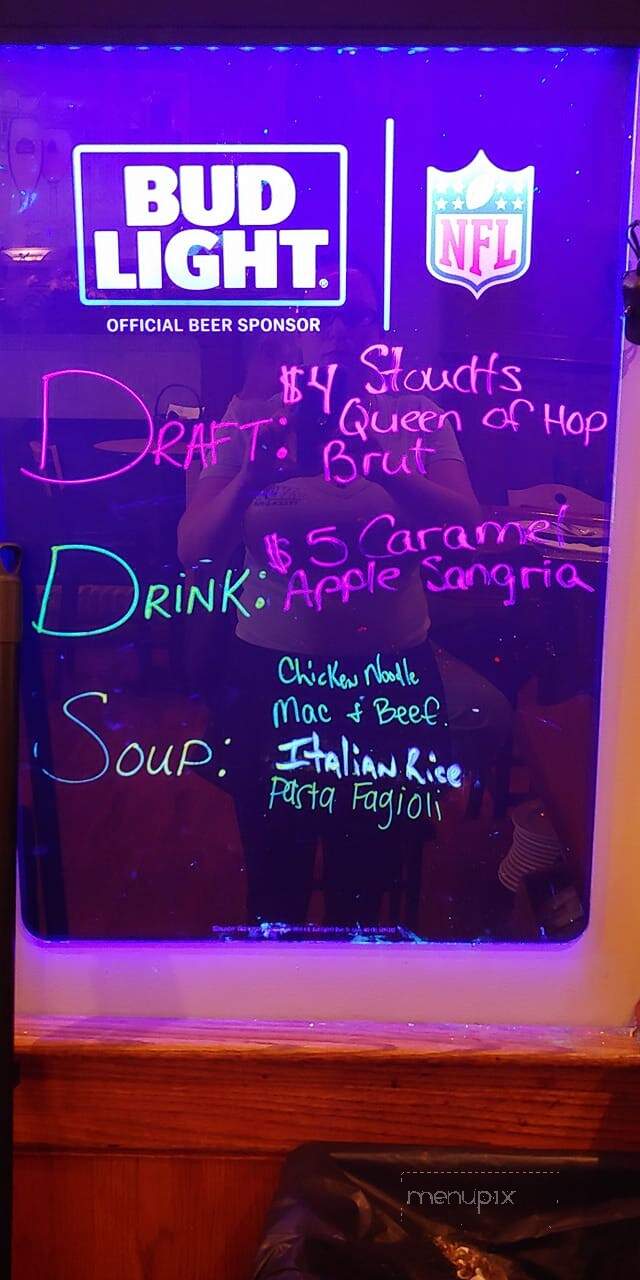 BUD
LIGHT®
OFFICIAL BEER SPONSOR
NFL
DRAFT: $4 Stoudts
Queen of Hop
Brut
DRINK: $5 Caramel
Apple Sangria
SOUP: Chicken Noodle
Mac & Beef.
Italian Rice
Pasta Fagioli
menupix